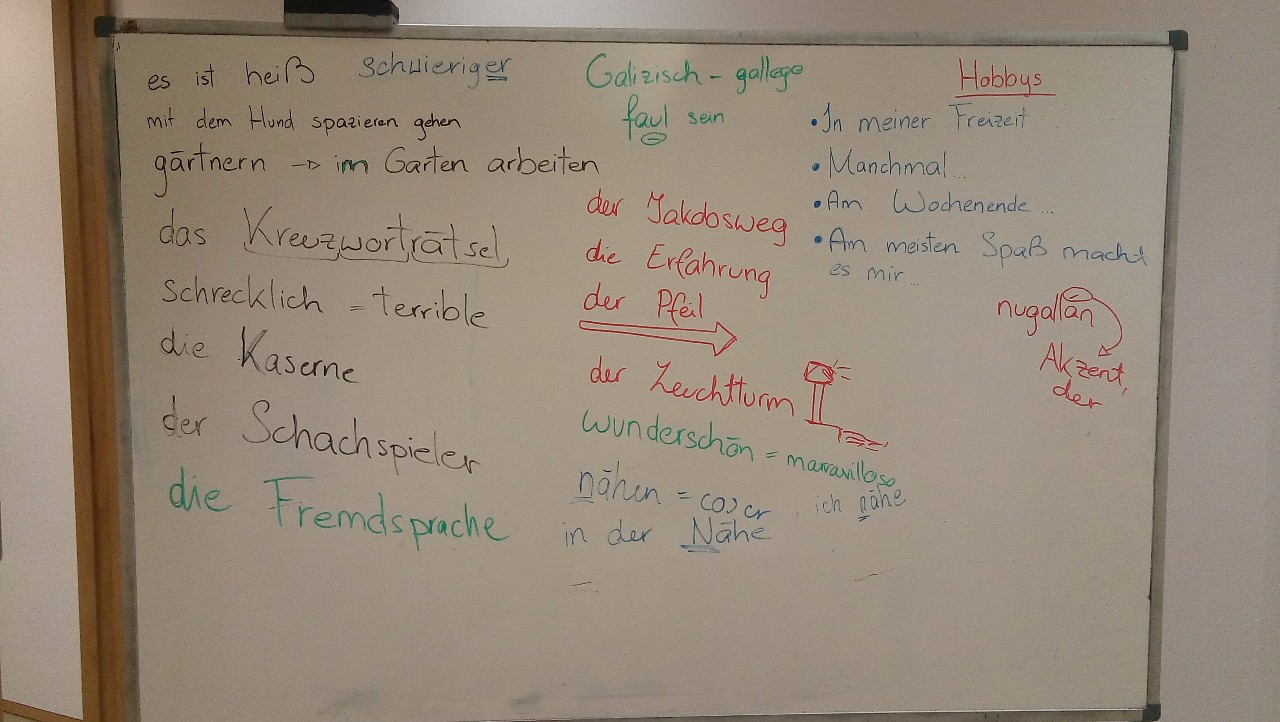 es ist heiß schwieriger
mit dem Hund spazieren gehen
gärtnern → im Garten arbeiten
das Kreuzworträtsel
schrecklich = terrible
die Kaserne
der Schachspieler
die Fremdsprache
Galizisch - gallego
faul sein
der Jakobsweg
die Erfahrung
der Pfeil
der Leuchtturm
wunderschön = marravilloso
nähen = coser, ich nähe
in der Nähe
Hobbys
• In meiner Freizeit
• Manchmal...
• Am Wochenende...
• Am meisten Spaß macht
es mir...
nugallán
Akzent,
der